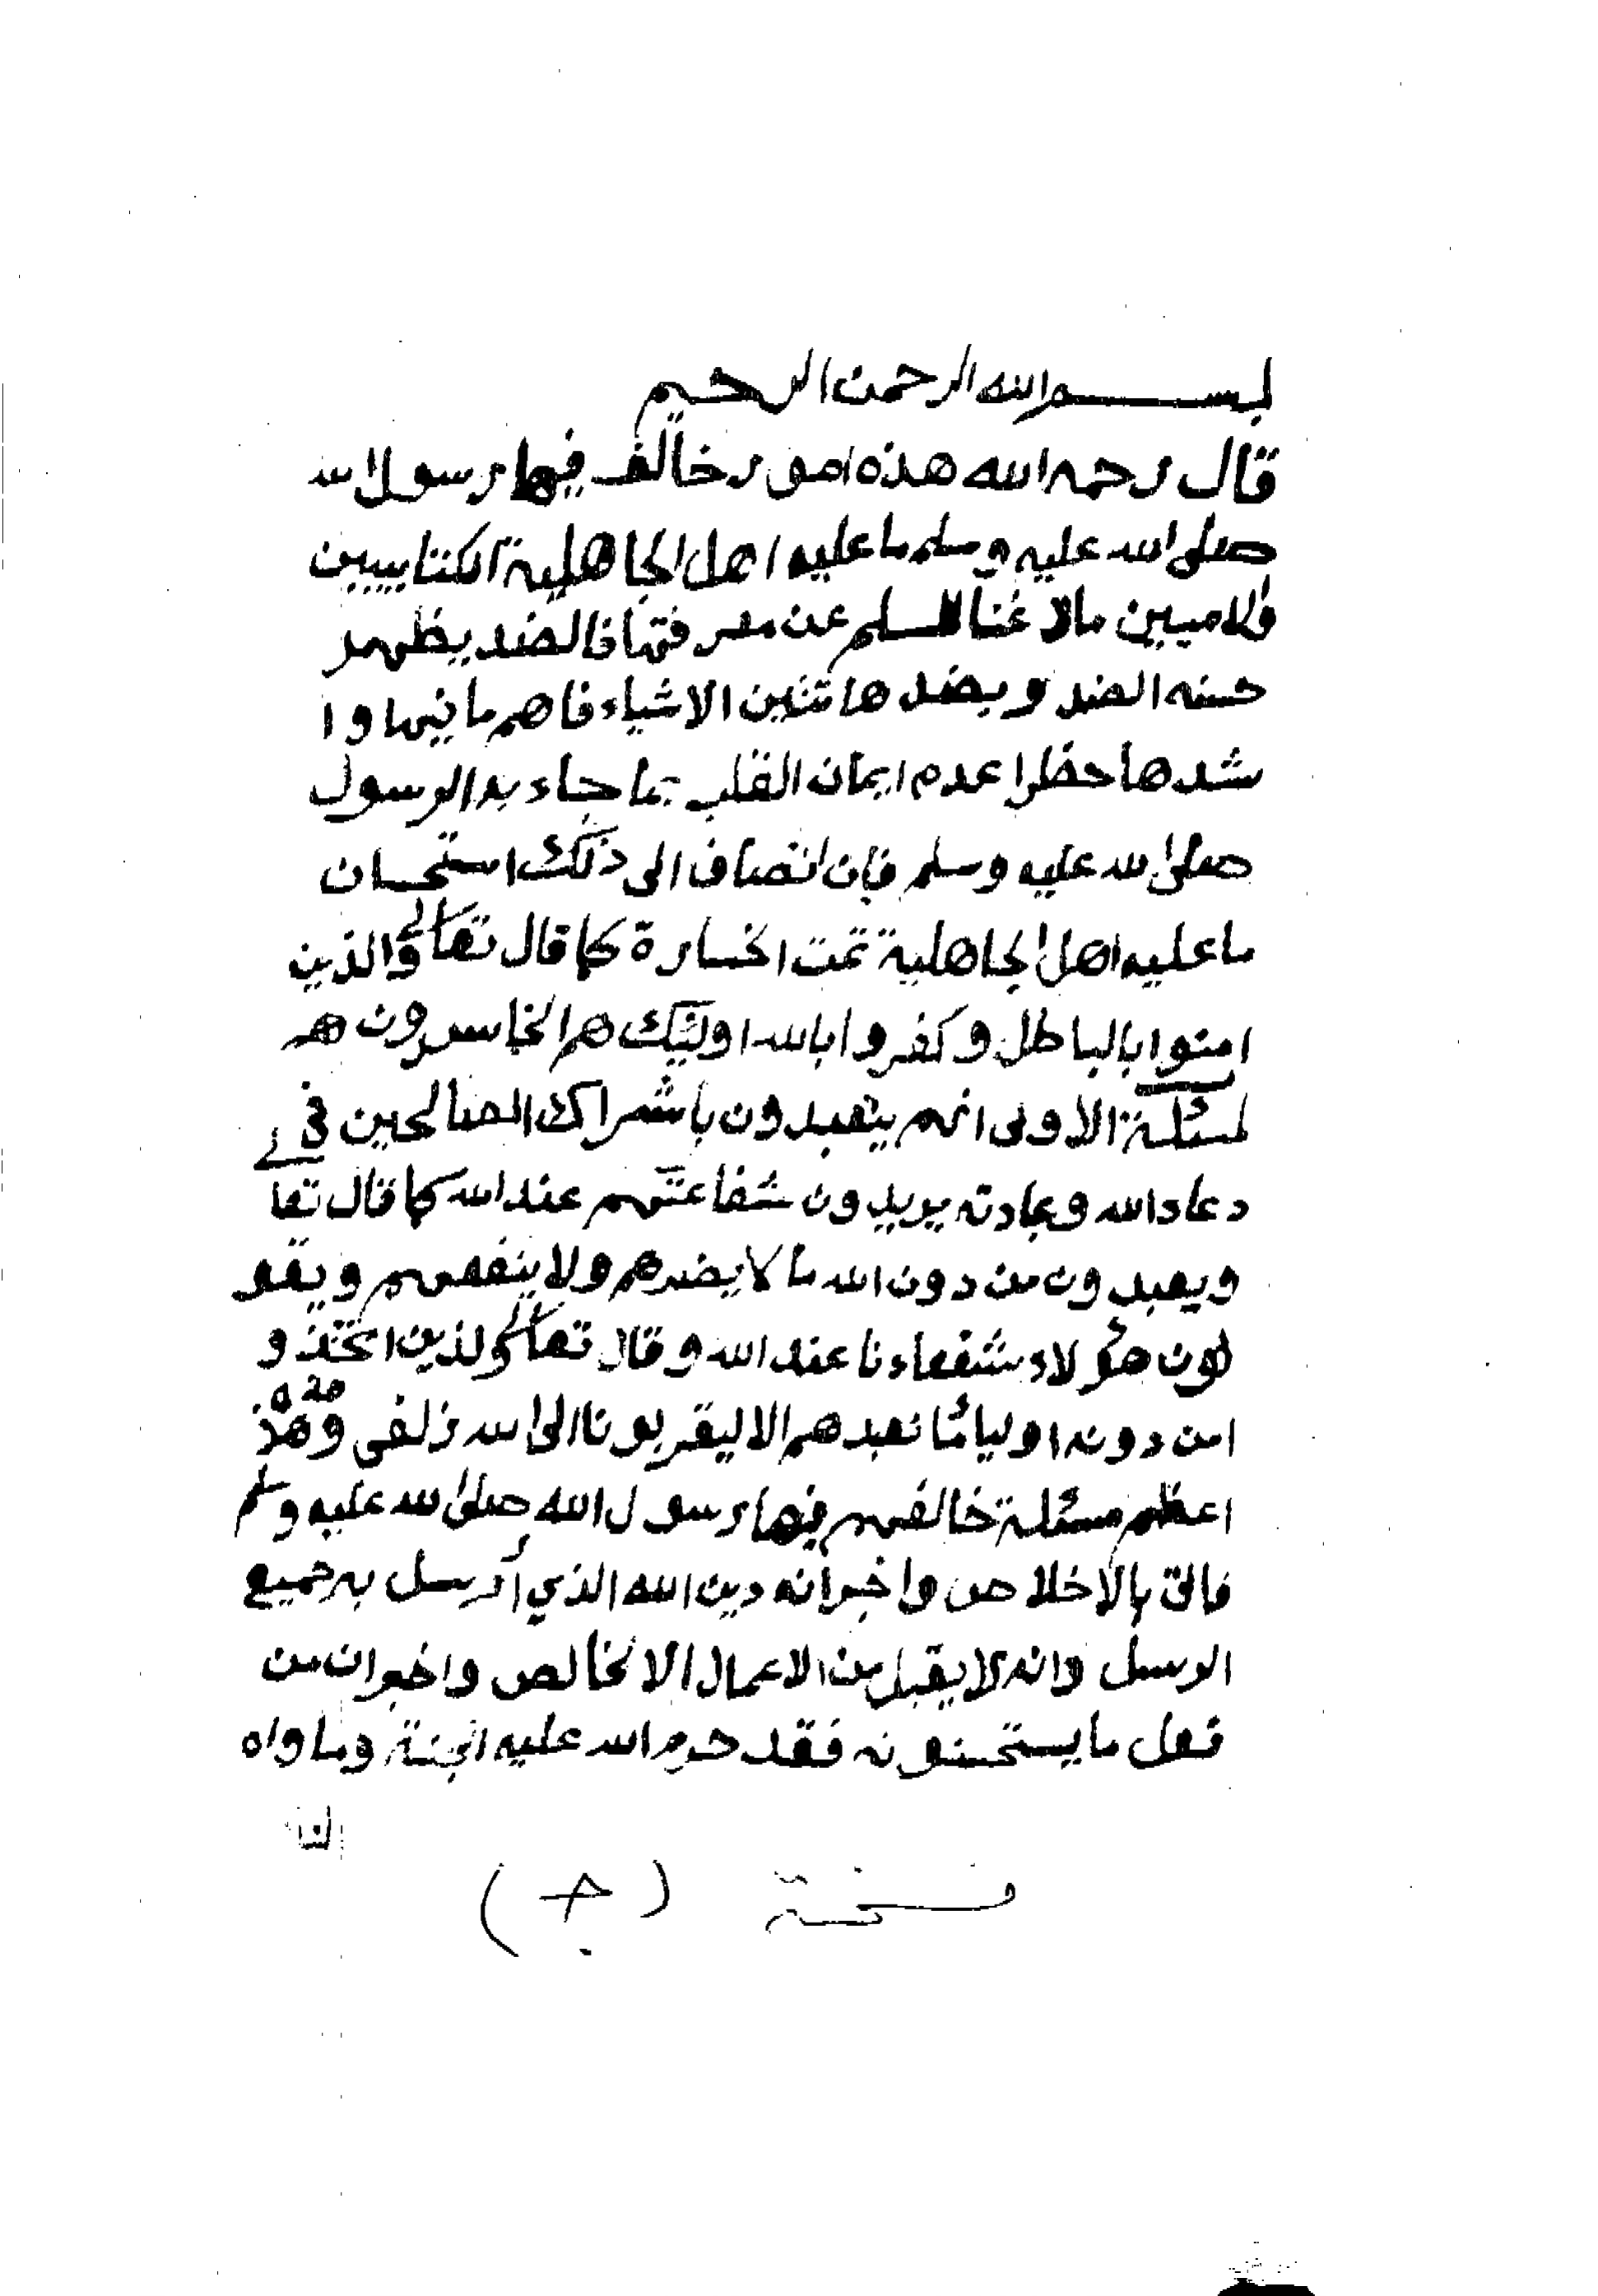 بسم الله الرحمن الرحيم
قال رحمه الله هذه امور خالف فيها رسول الله
صلى الله عليه وسلم ما عليه اهل الجاهلية الكتابيين
ولاميين مالا غنا للمسلم عن معرفتها فالضد يظهر
حسنه الضد وبضدها تتبين الاشياء فاهم ما فيها وا
شدها خطرا عدم ايمان القلب بما جاء به الرسول
صلى الله عليه وسلم فان انضاف الى ذلك استحسان
ما عليه اهل الجاهلية تمت الخسارة كما قال تعالى والذين
امنوا بالباطل وكفروا بالله اولئك هم الخاسرون
لمسئلة الاولى انهم يتعبدون باشراك الصالحين في
دعاء الله وعبادته يريدون شفاعتهم عند الله كما قال تعا
ويعبدون من دون الله ما لا يضرهم ولا ينفعهم ويقو
لون هؤلاء شفعاءنا عند الله وقال تعالى ولذين اتخذو
امن دونه اوليا ما نعبدهم الا ليقربونا الى الله زلفى وهذه
اعظم مسئلة خالفهم فيها رسول الله صلى الله عليه وسلم
فاتى بالاخلاص واخبر انه دين الله الذي ارسل به جميع
الرسل وانه لا يقبل من الاعمال الا الخالص واخبر ان من
فعل ما يستحسنونه فقد حرم الله عليه الجنة وماواه
النا
نسخة (ج)